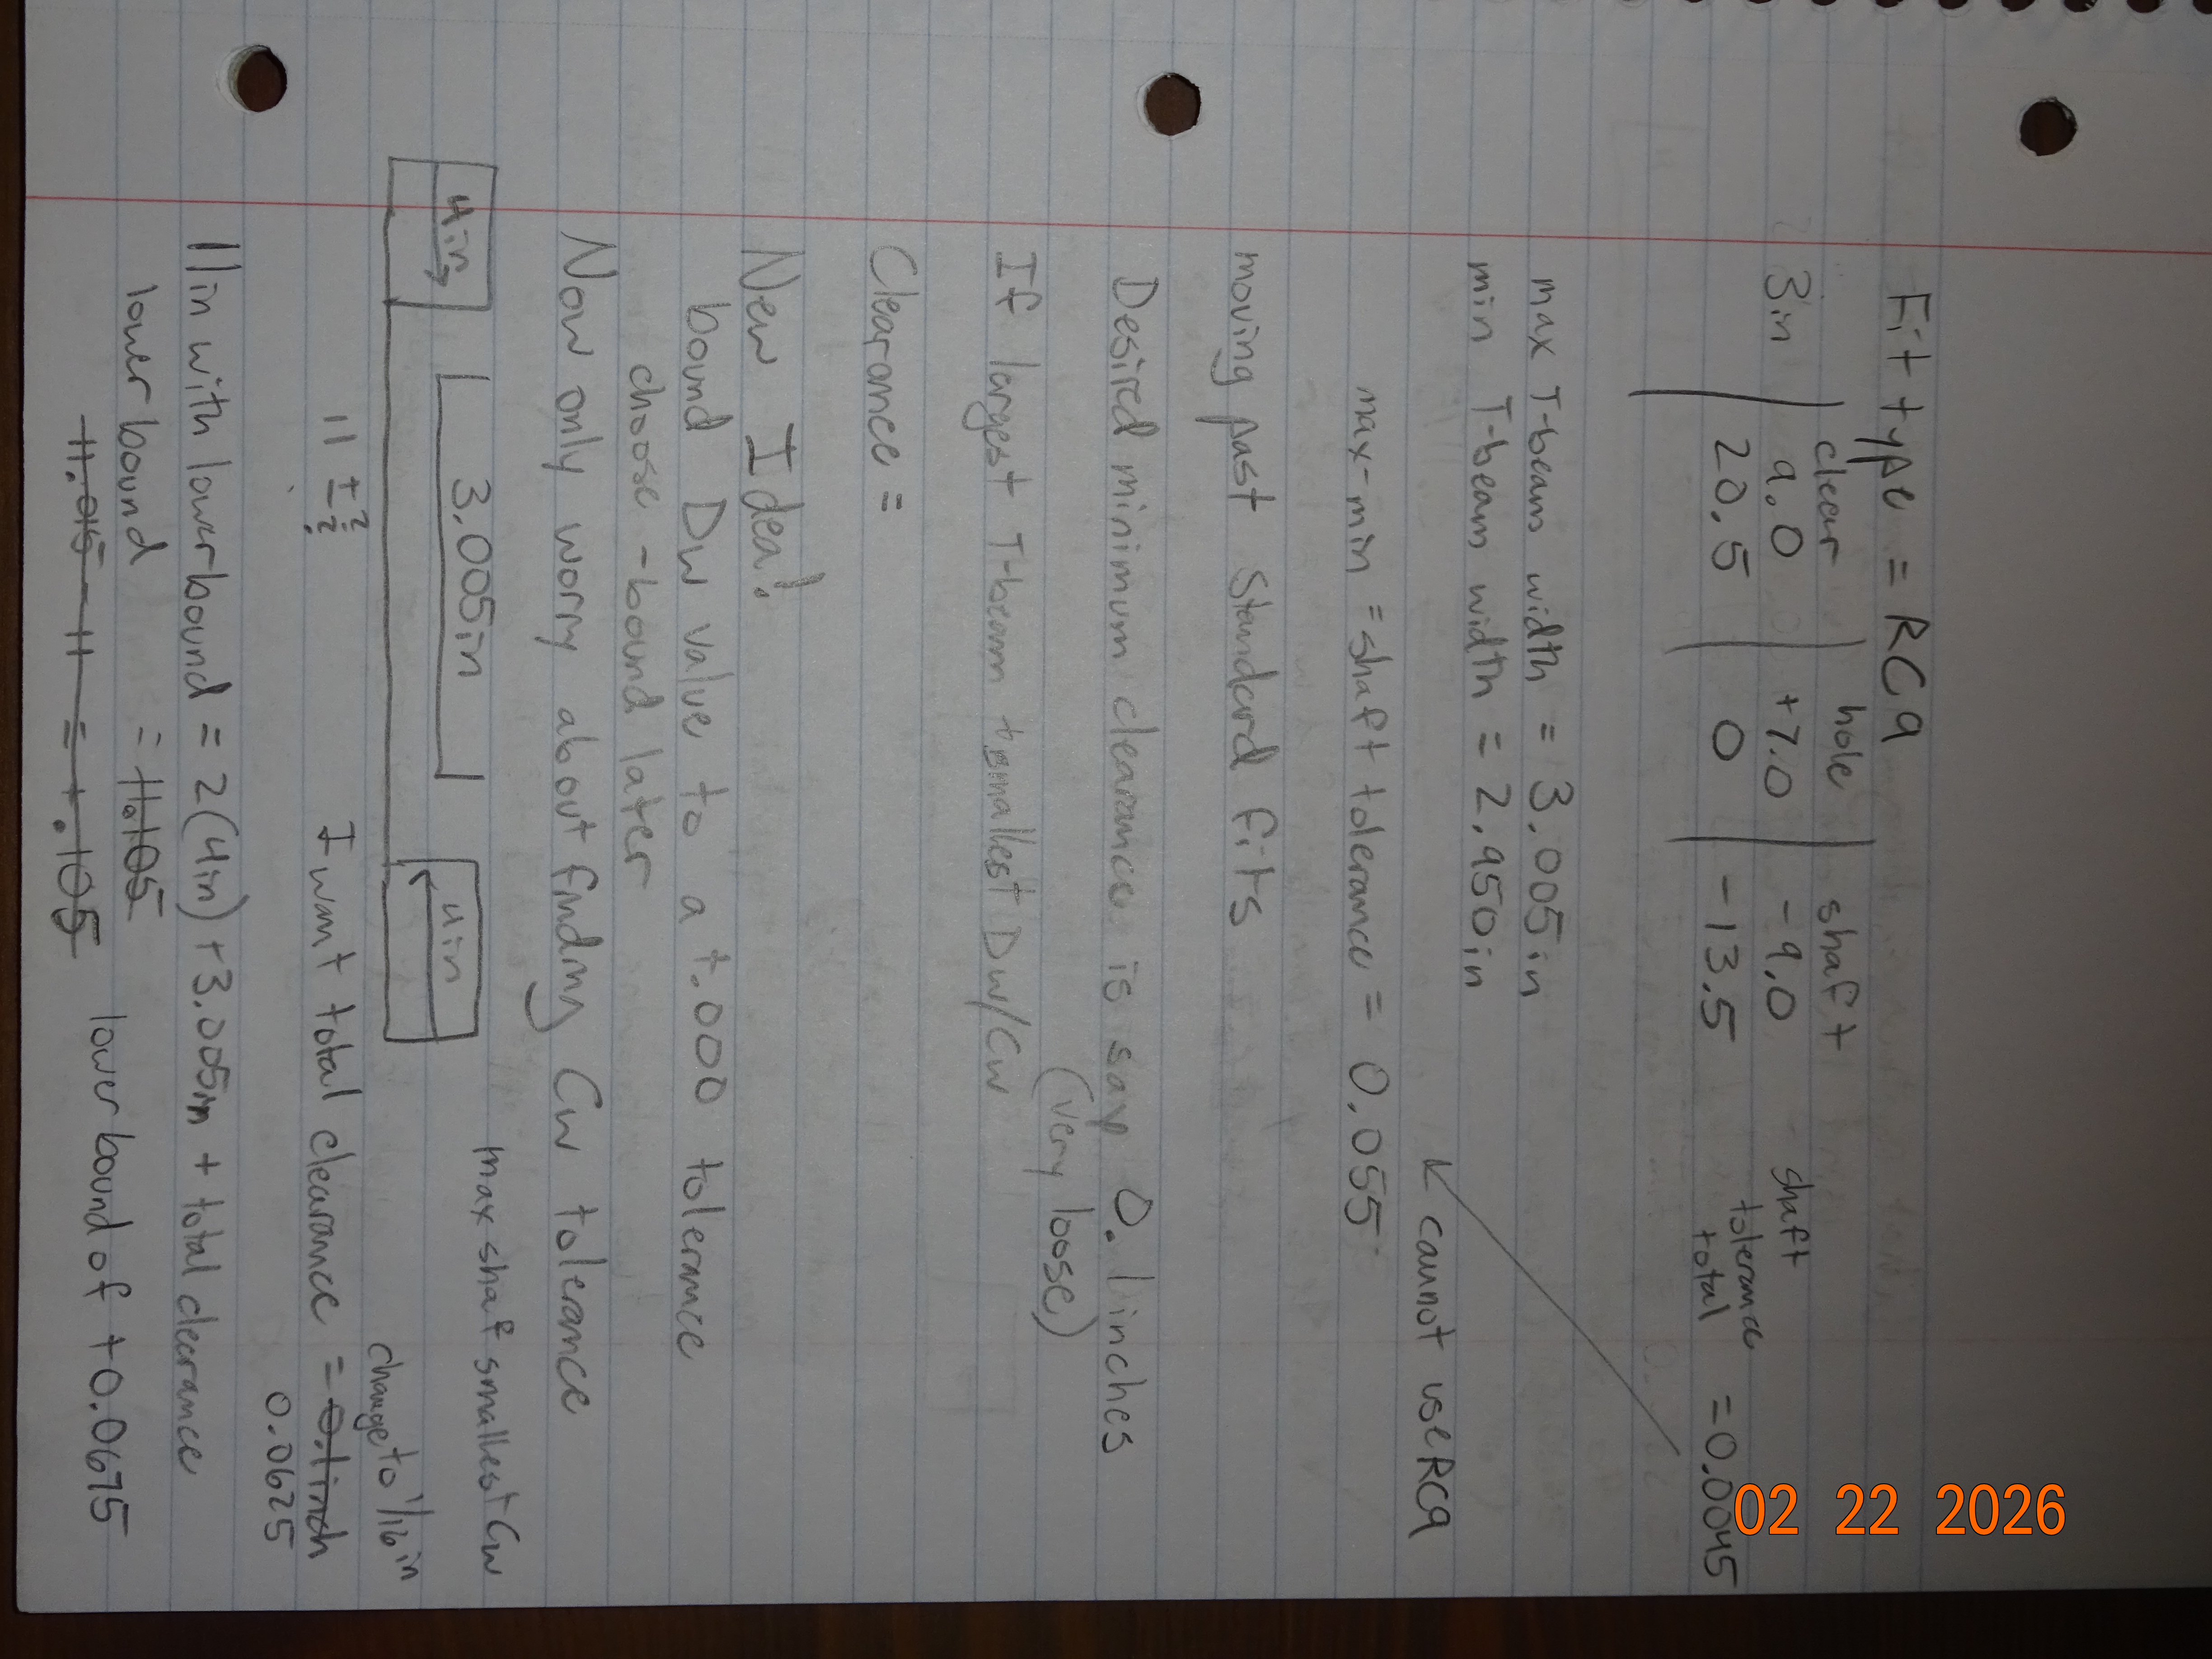 Fit type = RC9
clear | hole | shaft
3in | 9.0 | +7.0 | -9.0 shaft
20.5 | 0 | -13.5 tolerance total = 0.0045
max T-beam width = 3.005in
min T-beam width = 2.950in
cannot use RC9
max-min = shaft tolerance = 0.055
moving past standard fits
Desired minimum clearance is say 0.1 inches
(very loose)
If largest T-beam + smallest Dw/Cw
Clearance =
New Idea!
bound Dw value to a +.000 tolerance
choose -bound later
Now only worry about finding Cw tolerance
4in 3.005in 4in
max shaft smallest Cw
11 ± ? ?
change to 1/16in
I want total clearance = 0.1inch
0.0625
11in with lower bound = 2(4in) + 3.005in + total clearance
lower bound = 11.105
11.015 - 11 = +.105
lower bound of +0.0675
02 22 2026